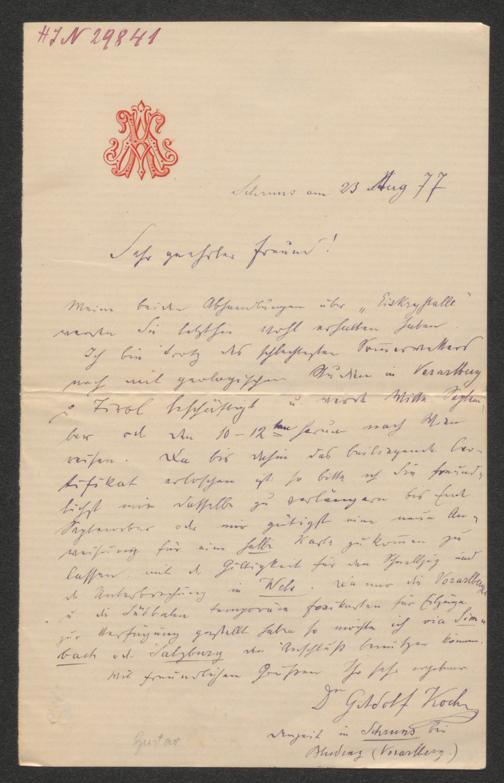 HIN 29841
Schruns am 23 Aug 77
Sehr geehrter Freund!
Meine beiden Abhandlungen über „Eiskrystalle"
werden Sie letzthin wohl erhalten haben.
Ich bin trotz des schlechtesten Sommerwetters
noch mit geologischen Studien in Vorarlberg
u Tirol beschäftigt u werde Mitte Septem-
ber od den 10–12ten herum nach Wien
reisen. Da bis dahin das beiliegende Cer-
tifikat erloschen ist so bitte ich Sie freund-
lichst mir dasselbe zu verlängern bis Ende
September oder mir gütigst eine neue An-
weisung für eine halbe Karte zukommen zu
lassen, mit der Giltigkeit für den Schnellzug und
der Unterbrechung in Wels. Da nur die Vorarlberger
u die Südbahn temporäre Freikarten für Eilzüge
zur Verfügung gestellt haben so möchte ich via Sim-
bach od Salzburg den Anschluß benützen können.
Mit freundlichen Grüßen Ihr sehr ergebener
Dr GAdolf Koch
derzeit in Schruns bei
Bludenz (Vorarlberg.)
Gustav